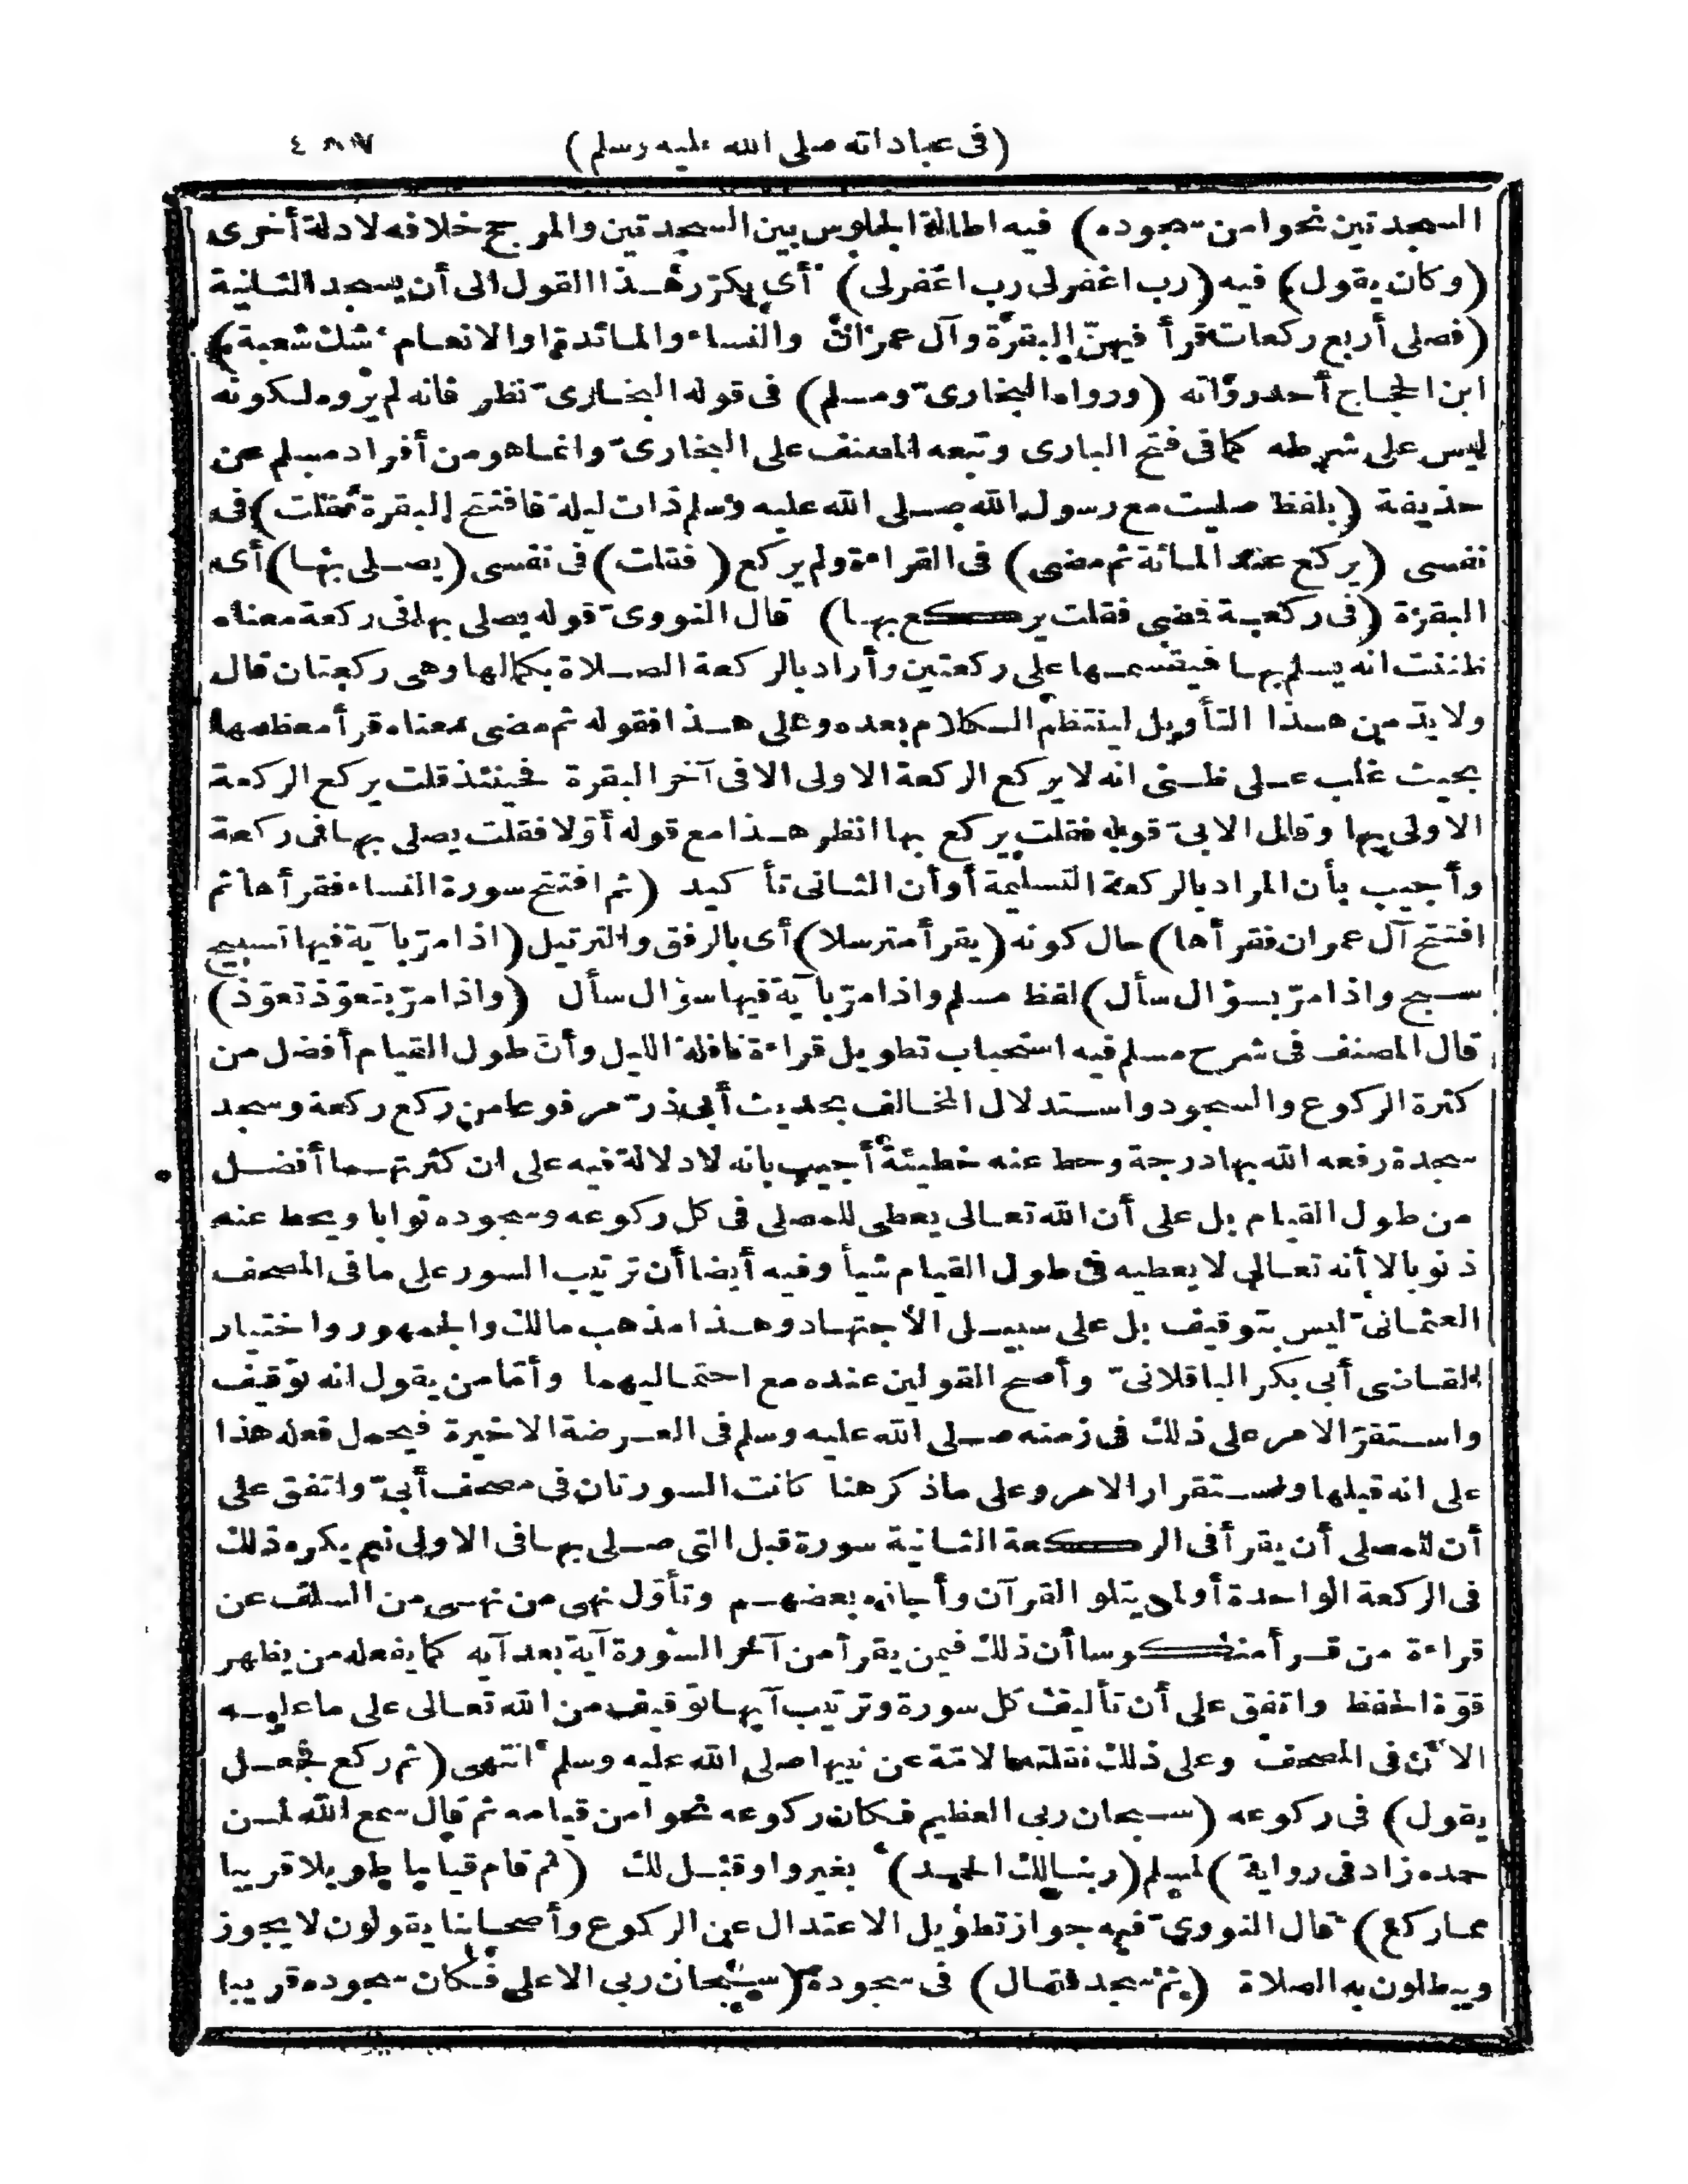 (فى عباداته صلى الله عليه وسلم) ٤٨٧
السجدتين نحوا من سجوده) فيه اطالة الجلوس بين السجدتين والمرجح خلافه لادلة أخرى
(وكان يقول) فيه (رب اغفرلى رب اغفرلى) أى يكرّر هذا القول الى أن يسجد الثانية
(فصلى أربع ركعات قرأ فيهنّ البقرة وآل عمران والنساء والمائدة أو الانعام شك شعبة)
ابن الحجاج أحد رواته (ورواه البخارىّ ومسلم) فى قوله البخارىّ نظر فانه لم يروه لكونه
ليس على شرطه كما فى فتح البارى وتبعه المصنف على البخارىّ وانما هو من أفراد مسلم عن
حذيفة (بلفظ صليت مع رسول الله صلى الله عليه وسلم ذات ليلة فافتتح البقرة فقلت) فى
نفسى (يركع عند المائة ثم مضى) فى القراءة ولم يركع (فقلت) فى نفسى (يصلى بها) أى
البقرة (فى ركعة فمضى فقلت يركع بها) قال النووىّ قوله يصلى بها فى ركعة معناه
ظننت انه يسلم بها فيقسمها على ركعتين وأراد بالركعة الصلاة بكمالها وهى ركعتان قال
ولا بدّ من هذا التأويل لينتظم الكلام بعده وعلى هذا فقوله ثم مضى معناه قرأ معظمها
بحيث غلب على ظنى انه لا يركع الركعة الاولى الا فى آخر البقرة فحينئذ قلت يركع الركعة
الاولى بها وقال الابىّ قوله فقلت يركع بها انظر هذا مع قوله أوّلا فقلت يصلى بها فى ركعة
وأجيب بأن المراد بالركعة التسليمة أو أن الثانى تأكيد (ثم افتتح سورة النساء فقرأها ثم
افتتح آل عمران فقرأها) حال كونه (يقرأ مترسلا) أى بالرفق والترتيل (اذا مرّ بآية فيها تسبيح
سبح واذا مرّ بسؤال سأل) لفظ مسلم واذا مرّ بآية فيها سؤال سأل (واذا مرّ بتعوّذ تعوّذ)
قال المصنف فى شرح مسلم فيه استحباب تطويل قراءة نافلة الليل وأن طول القيام أفضل من
كثرة الركوع والسجود واستدلال المخالف بحديث أبى ذرّ مرفوعا من ركع ركعة وسجد
سجدة رفعه الله بها درجة وحط عنه خطيئة أجيب بانه لا دلالة فيه على ان كثرتهما أفضل
من طول القيام بل على أن الله تعالى يعطى للمصلى فى كل ركوعه وسجوده ثوابا ويحط عنه
ذنوبا لا أنه تعالى لا يعطيه فى طول القيام شيأ وفيه أيضا أن ترتيب السور على ما فى المصحف
العثمانىّ ليس بتوقيف بل على سبيل الاجتهاد وهذا مذهب مالك والجمهور واختيار
القاضى أبى بكر الباقلانىّ وأصح القولين عنده مع احتماليهما وأمّا من يقول انه توقيف
واستقرّ الامر على ذلك فى زمنه صلى الله عليه وسلم فى العرضة الاخيرة فيحمل فعله هذا
على انه قبلها واستقرار الامر وعلى ما ذكر هنا كانت السورتان فى مصحف أبىّ واتفق على
أن للمصلى أن يقرأ فى الركعة الثانية سورة قبل التى صلى بها فى الاولى نعم يكره ذلك
فى الركعة الواحدة أو لمن يتلو القرآن وأجازه بعضهم وتأوّل نهى من نهى من السلف عن
قراءة من قرأ منكوسا أن ذلك فيمن يقرأ من آخر السورة آية بعد آيه كما يفعله من يظهر
قوّة الحفظ واتفق على أن تأليف كل سورة وترتيب آيها توقيف من الله تعالى على ما عليه
الآن فى المصحف وعلى ذلك نقلته الامّة عن نبيها صلى الله عليه وسلم انتهى (ثم ركع فجعل
يقول) فى ركوعه (سبحان ربى العظيم فكان ركوعه نحوا من قيامه ثم قال سمع الله لمن
حمده زاد فى رواية) لمسلم (ربنا لك الحمد) بغير واو قبل لك (ثم قام قياما طويلا قريبا
مما ركع) قال النووىّ فيه جواز تطويل الاعتدال عن الركوع وأصحابنا يقولون لا يجوز
ويبطلون به الصلاة (ثم سجد فقال) فى سجوده (سبحان ربى الاعلى فكان سجوده قريبا